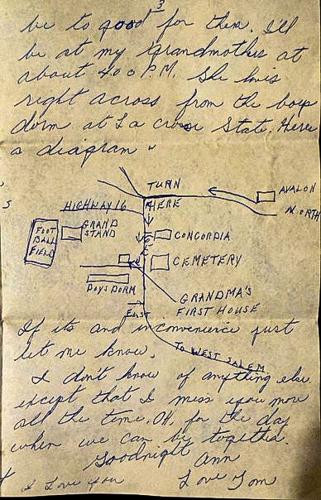 3
be to good for them. I'll
be at my Grandmothers at
about 4:00 P.M. She lives
right across from the boys
dorm at La crosse State. Heres
a diagram "
TURN
HERE
AVALON
NORTH
HIGHWAY 16
S
FOOT
BALL
FIELD
GRAND
STAND
CONCORDIA
CEMETERY
BOYS DORM
GRANDMA'S
FIRST HOUSE
EAST
TO WEST SALEM
If its and inconvenience just
let me know.
I don't know of anything else
except that I miss you more
all the time. Oh, for the day
when we can be together.
Goodnight Ann
I Love You Love Tom